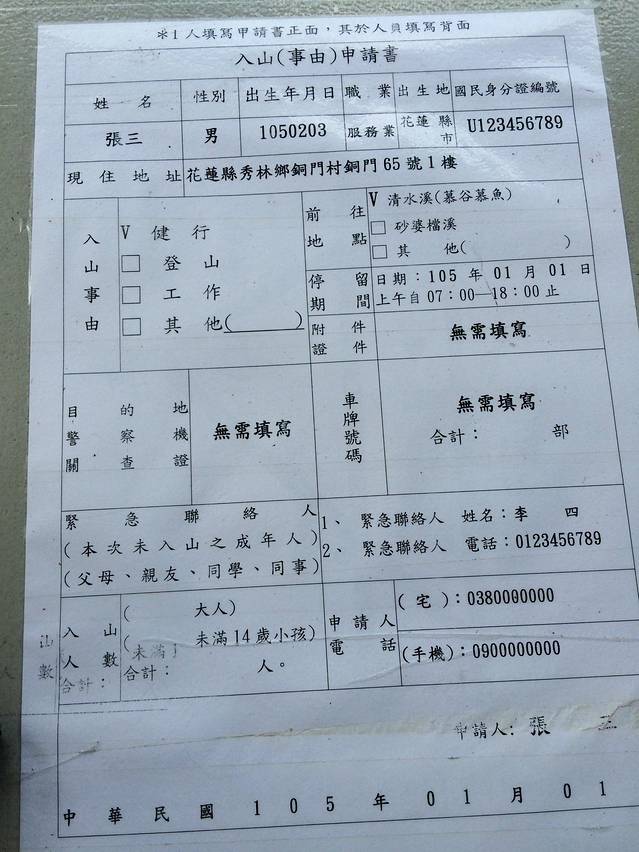 *1人填寫申請書正面，其於人員填寫背面
入山(事由)申請書
姓 名 性別 出生年月日 職 業 出生地 國民身分證編號
張三 男 1050203 服務業 花蓮 縣市 U123456789
現住地址 花蓮縣秀林鄉銅門村銅門65號1樓
入山事由
V 健行
□ 登山
□ 工作
□ 其他( )
前往地點
V 清水溪(慕谷慕魚)
□ 砂婆檔溪
□ 其 他( )
停留期間
日期：105 年 01 月 01 日
上午自07：00—18：00 止
附件證件 無需填寫
目的地警察機關查證 無需填寫
車牌號碼 無需填寫
合計： 部
緊急聯絡人
(本次未入山之成年人)
(父母、親友、同學、同事)
1、 緊急聯絡人 姓名：李 四
2、 緊急聯絡人 電話：0123456789
入山人數
( 大人)
( 未滿14歲小孩)
合計： 人。
申請人電話
(宅)：0380000000
(手機)：0900000000
申請人：張 三
中華民國 105 年 01 月 01